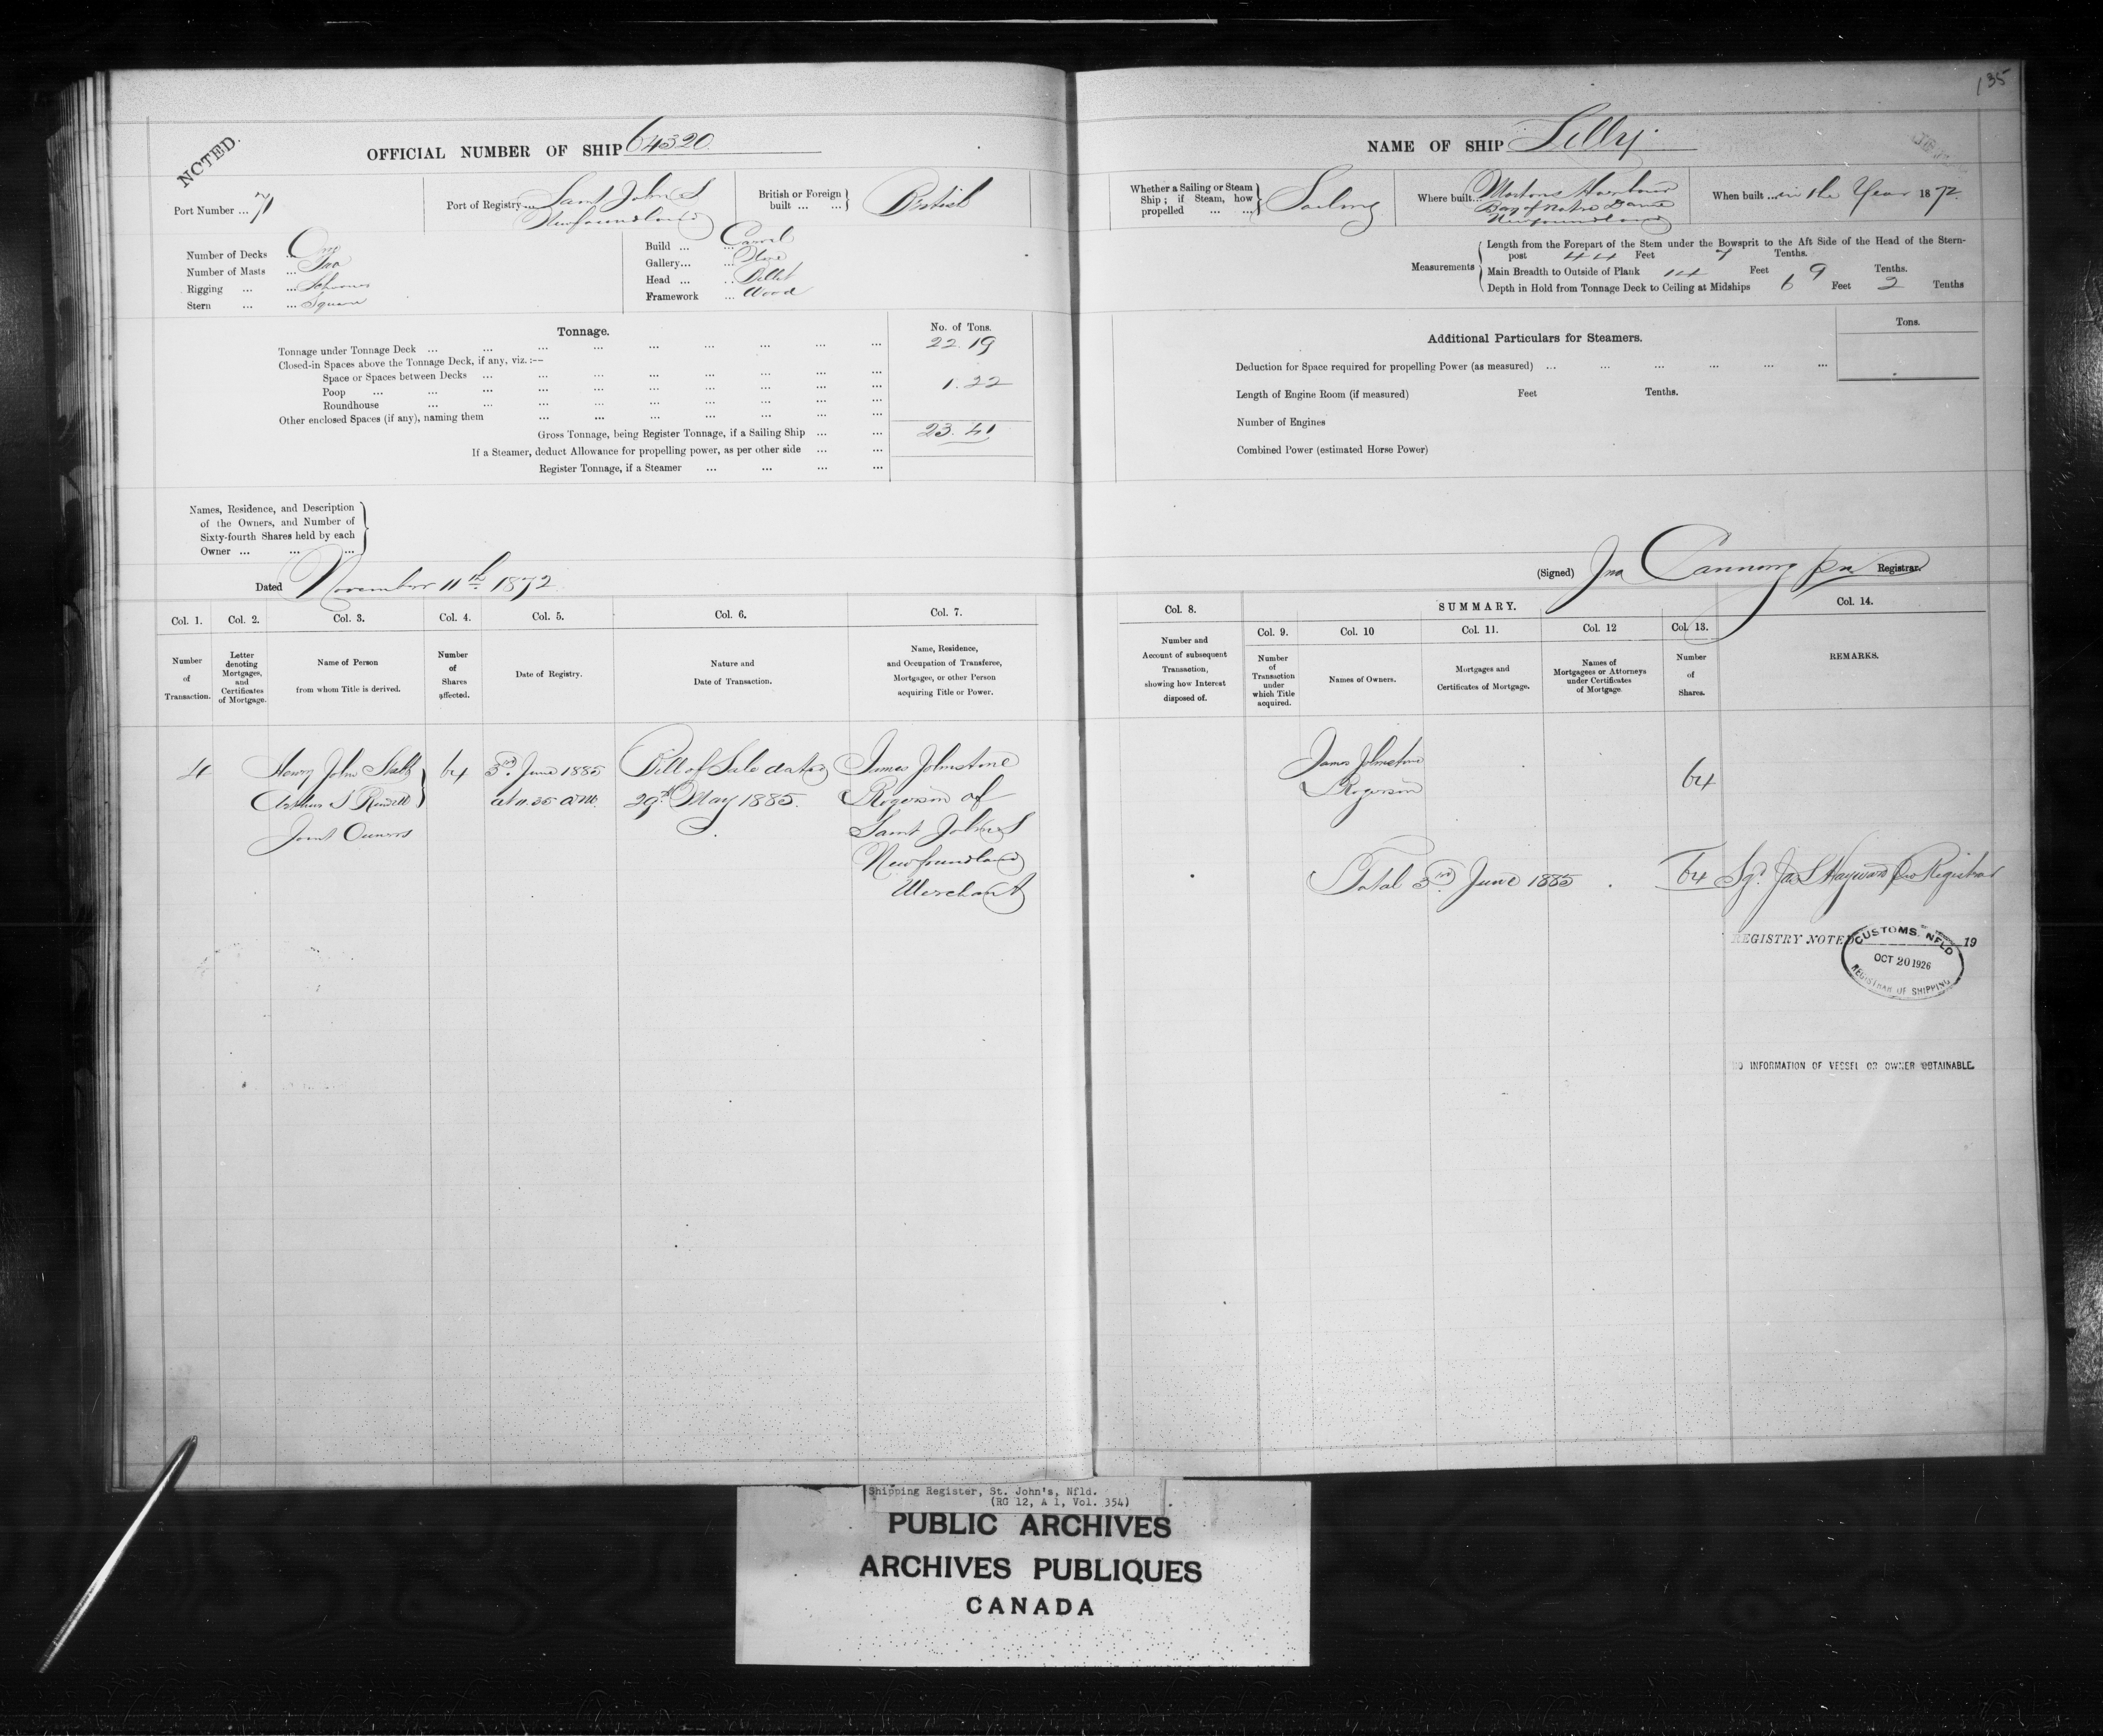 135
NOTED.
OFFICIAL NUMBER OF SHIP 64320
NAME OF SHIP Lilly
Port Number ... 71
Port of Registry Saint John's
Newfoundland
British or Foreign built ... ... British
Whether a Sailing or Steam Ship; if Steam, how propelled ... ... Sailing
Where built... Mortons Harbour
Bay of Notre Dame
Newfoundland
When built ... in the Year 1872
Number of Decks ... One
Number of Masts ... Two
Rigging ... ... Schooner
Stern ... ... Square
Build ... ... Carvel
Gallery... ... None
Head ... ... Billet
Framework ... Wood
Measurements
Length from the Forepart of the Stem under the Bowsprit to the Aft Side of the Head of the Stern-
post 44 Feet 7 Tenths.
Main Breadth to Outside of Plank 14 Feet 9 Tenths.
Depth in Hold from Tonnage Deck to Ceiling at Midships 6 Feet 2 Tenths
Tonnage.
No. of Tons.
Tonnage under Tonnage Deck ... 22.19
Closed-in Spaces above the Tonnage Deck, if any, viz. :--
Space or Spaces between Decks ...
Poop ... ... 1.22
Roundhouse ...
Other enclosed Spaces (if any), naming them ...
Gross Tonnage, being Register Tonnage, if a Sailing Ship ... ... 23.41
If a Steamer, deduct Allowance for propelling power, as per other side ... ...
Register Tonnage, if a Steamer ... ... ... ...
Additional Particulars for Steamers.
Tons.
Deduction for Space required for propelling Power (as measured) ...
Length of Engine Room (if measured) Feet Tenths.
Number of Engines
Combined Power (estimated Horse Power)
Names, Residence, and Description
of the Owners, and Number of
Sixty-fourth Shares held by each
Owner ... ... ...
Dated November 11th 1872
(Signed) Jno Canning pro Registrar.
Col. 1.
Number
of
Transaction.
Col. 2.
Letter
denoting
Mortgages,
and
Certificates
of Mortgage.
Col. 3.
Name of Person
from whom Title is derived.
Col. 4.
Number
of
Shares
affected.
Col. 5.
Date of Registry.
Col. 6.
Nature and
Date of Transaction.
Col. 7.
Name, Residence,
and Occupation of Transferee,
Mortgagee, or other Person
acquiring Title or Power.
Col. 8.
Number and
Account of subsequent
Transaction,
showing how Interest
disposed of.
SUMMARY.
Col. 9.
Number
of
Transaction
under
which Title
acquired.
Col. 10
Names of Owners.
Col. 11.
Mortgages and
Certificates of Mortgage.
Col. 12
Names of
Mortgagees or Attorneys
under Certificates
of Mortgage
Col. 13.
Number
of
Shares.
Col. 14.
REMARKS.
4
Henry John Stabb
Arthur S Rendell
Joint Owners
64
3rd June 1885
at 11.35 a.m.
Bill of Sale dated
29th May 1885.
James Johnstone
Rogerson of
Saint John's
Newfoundland
Merchant
James Johnstone
Rogerson
64
Total 3rd June 1885
64
Sgd Jas S Hayward pro Registrar
REGISTRY NOTED 19
CUSTOMS. NFLD
OCT 20 1926
REGISTRAR OF SHIPPING
NO INFORMATION OF VESSEL OR OWNER OBTAINABLE.
Shipping Register, St. John's, Nfld.
(RG 12, A 1, Vol. 354)
PUBLIC ARCHIVES
ARCHIVES PUBLIQUES
CANADA